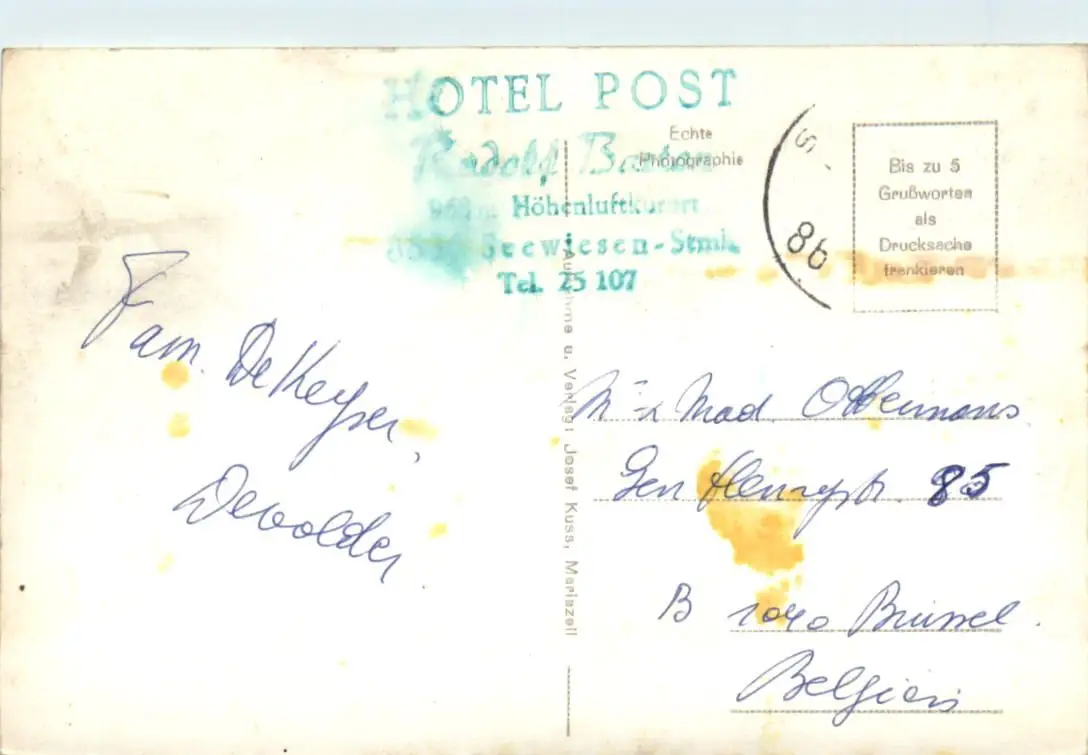 HOTEL POST
Rudolf
Höhenluftkurort
Seewiesen-Stmk.
Tel. 25 107
Echte
Photographie
S
86
Bis zu 5
Grußworten
als
Drucksache
frankieren
Fam. De Keyser,
Devolder
Aufnahme u. Verlag: Josef Kuss, Mariazell
Mad.
Gen Henrystr. 85
B 1040 Brüssel.
Belgien